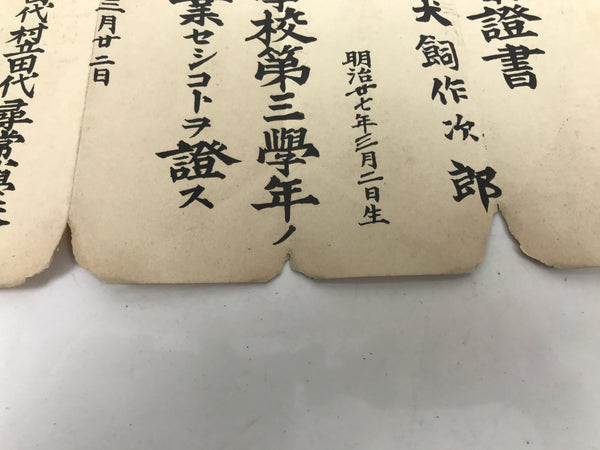 證書
犬飼作次郎
明治廿七年三月二日生
學校第三學年ノ
業セシコトヲ證ス
三月廿二日
代村立田代尋常小學校